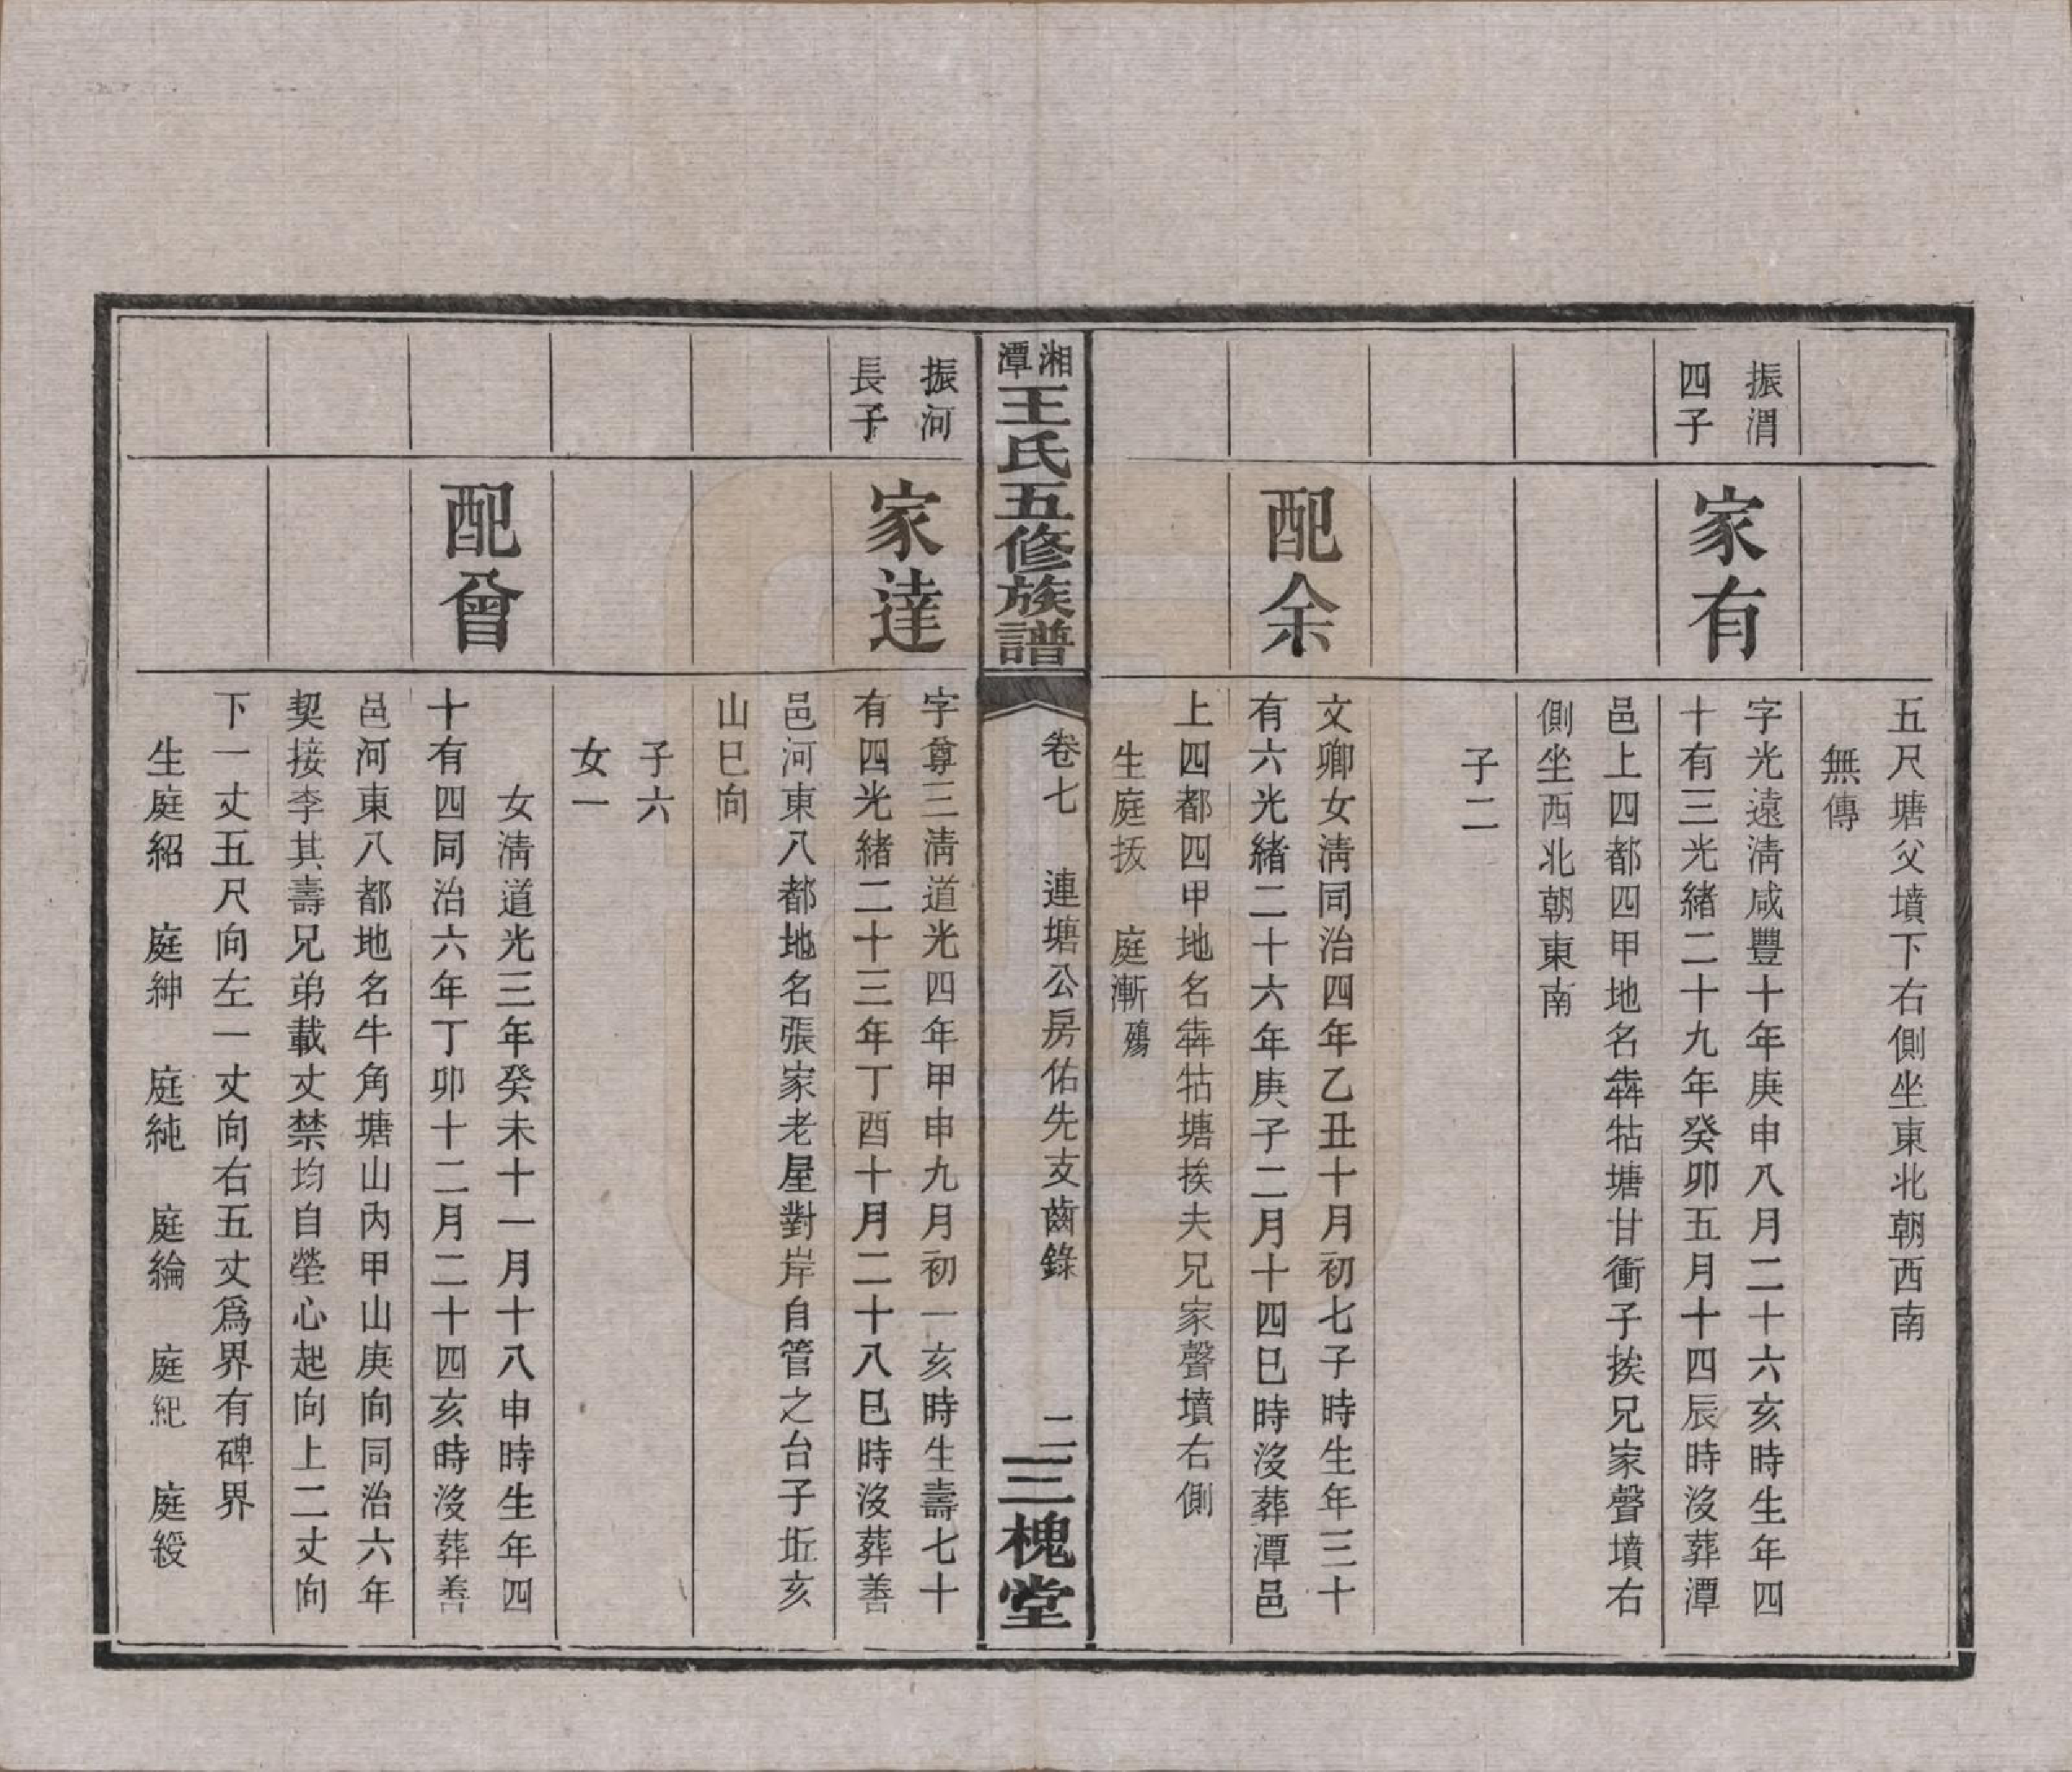 五尺塘父墳下右側坐東北朝西南
無傳
振渭
四子
家有
字光遠淸咸豐十年庚申八月二十六亥時生年四
十有三光緒二十九年癸卯五月十四辰時沒葬潭
邑上四都四甲地名犇牯塘甘衝子挨兄家聲墳右
側坐西北朝東南
子二
配余
文卿女淸同治四年乙丑十月初七子時生年三十
有六光緒二十六年庚子二月十四巳時沒葬潭邑
上四都四甲地名犇牯塘挨夫兄家聲墳右側
生庭扳 庭漸殤
湘潭王氏五修族譜
卷七 連塘公房佑先支齒錄 二
三槐堂
振河
長子
家達
字尊三淸道光四年甲申九月初一亥時生壽七十
有四光緒二十三年丁酉十月二十八巳時沒葬善
邑河東八都地名張家老屋對岸自管之台子坵亥
山巳向
子六
女一
配曾
女淸道光三年癸未十一月十八申時生年四
十有四同治六年丁卯十二月二十四亥時沒葬善
邑河東八都地名牛角塘山內甲山庚向同治六年
契接李其壽兄弟載丈禁均自塋心起向上二丈向
下一丈五尺向左一丈向右五丈爲界有碑界
生庭紹 庭紳 庭純 庭綸 庭紀 庭綬